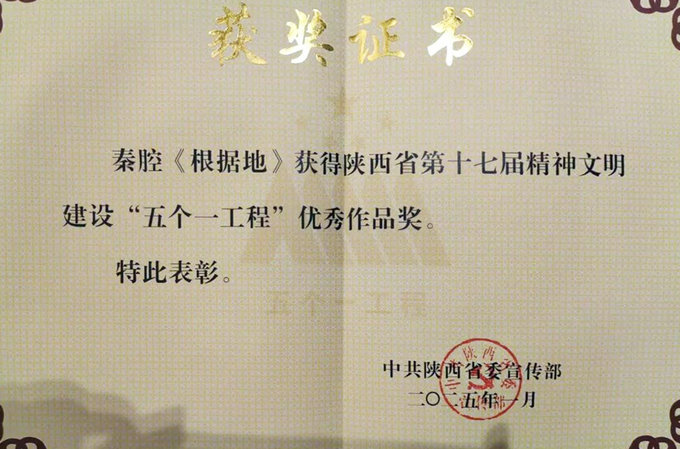 获奖证书
秦腔《根据地》获得陕西省第十七届精神文明
建设“五个一工程”优秀作品奖。
特此表彰。
五个一工程
中共陕西省委宣传部
二〇二五年一月